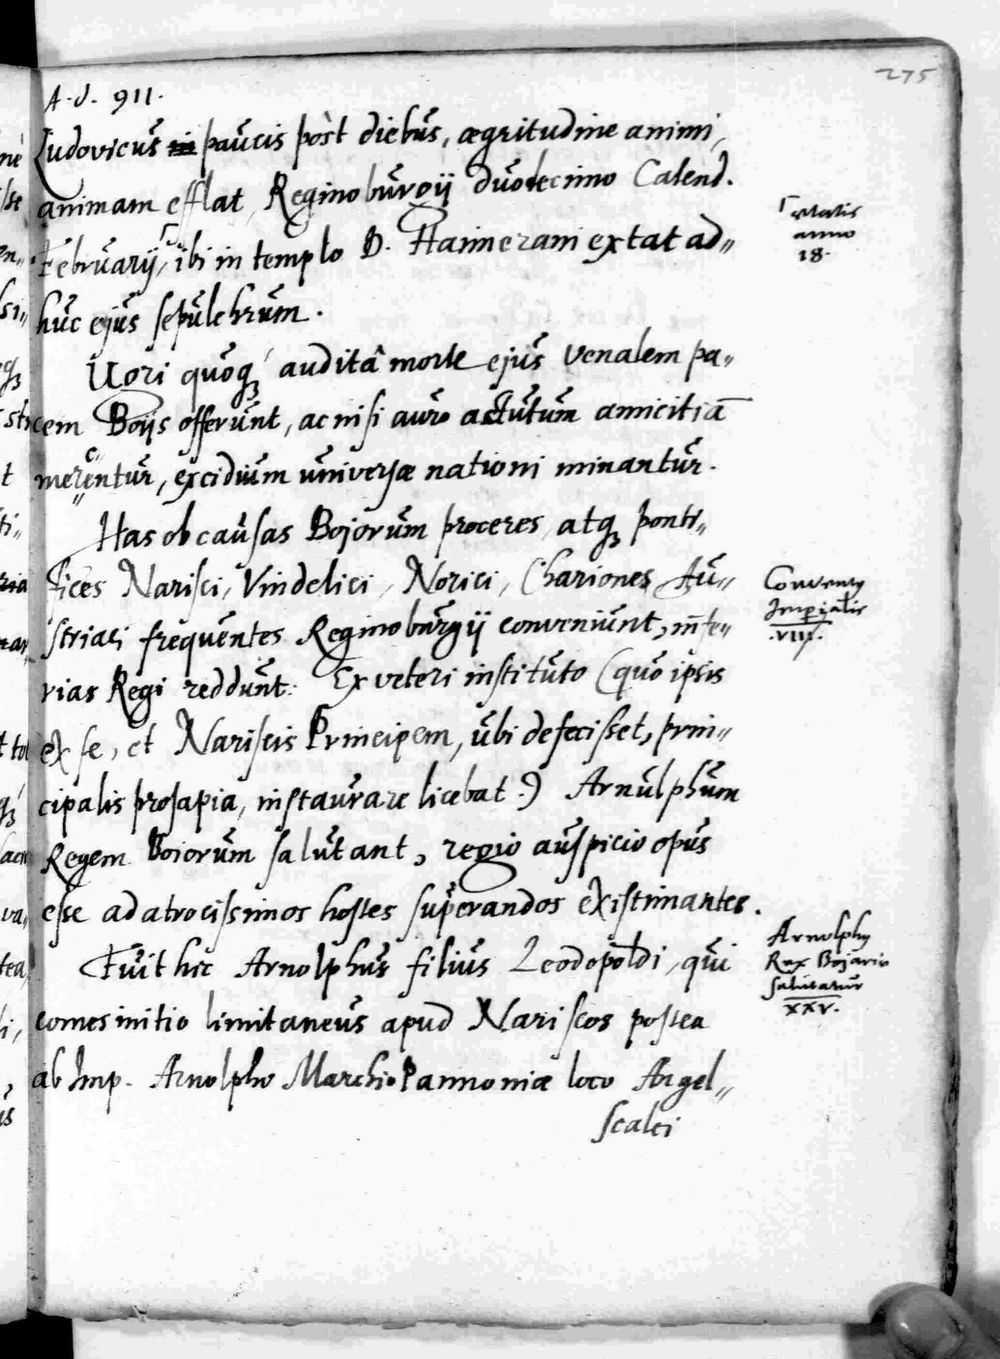 275
A. d. 911.
Ludovicus paucis pòst diebus, ægritudine animi,
animam efflat, Reginoburgij duodecimo Calend.
Februarij, ibi in templo D. Haimerani extat ad„
huc ejus sepulchrum.
Ugri quoq́ȝ auditâ morte ejus venalem pa„
cem Boijs offerunt, ac nisi auro actutum amicitiā
merentur, excidium universæ nationi minantur.
Has ob causas Bojorum proceres, atqȝ ponti„
fices Narisci, Vindelici, Norici, Chariones, Au„
striaci frequentes Reginoburgij conveniunt, inte„
rias Regi reddunt. Ex veteri instituto (quo ipsis
ex se, et Nariscis Principem, ubi defecisset, prin„
cipalis prosapia, instaurare licebat:) Arnulphum
Regem Boiorum salutant, regio auspicio opus
esse ad atrocissimos hostes superandos existimantes.
Fuit hic Arnolphus filius Leodopoldi, qui
comes initio limitaneus apud Nariscos postea
ab Imp. Arnolpho Marchio Pannoniæ loco Angel„
scalci
ætatis
anno
18.
Conventus
Imperialis
.VIII.
Arnolphus
Rex Bojariæ
salutatur
XXV.